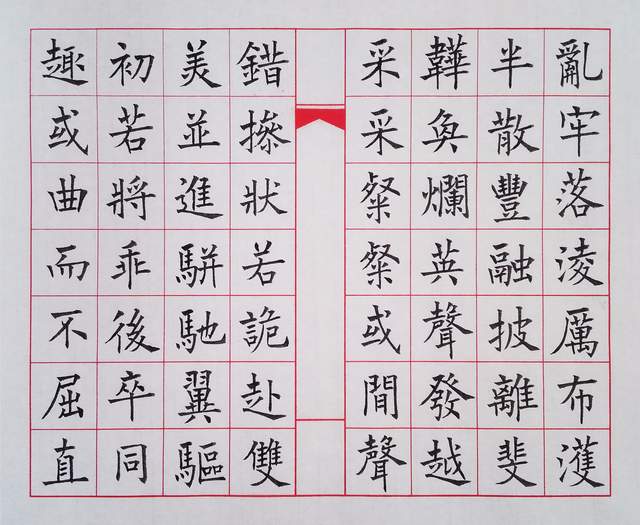 亂牢落淩厲布濩
半散豐融披離斐
韡奐爛英聲發越
采采粲粲或間聲
錯摻狀若詭赴雙
美並進駢馳翼驅
初若將乖後卒同
趣或曲而不屈直